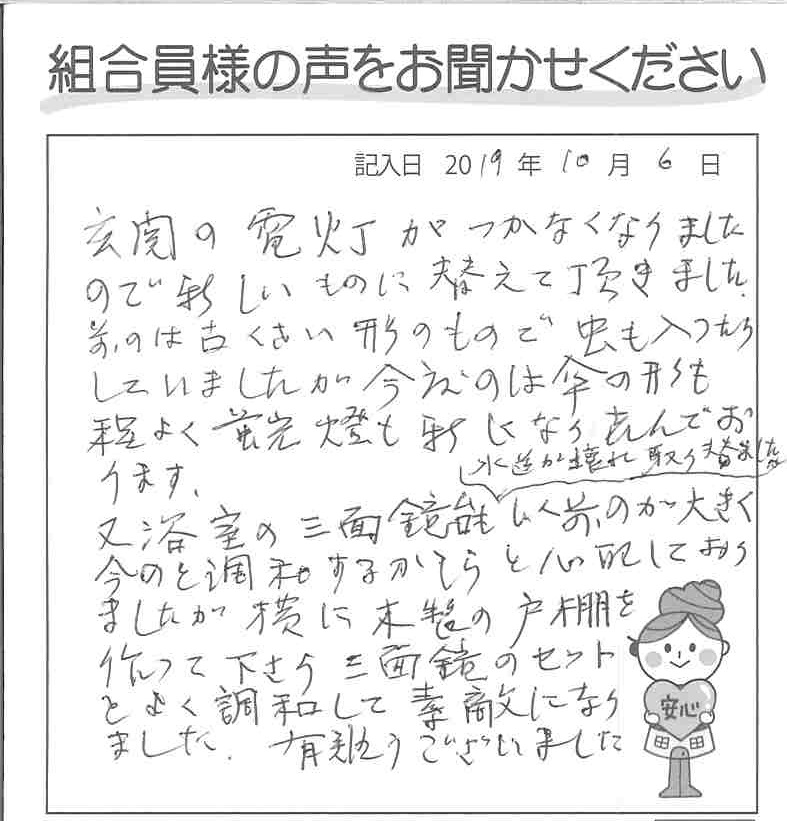 組合員様の声をお聞かせください
記入日 2019年10月6日
玄関の電灯がつかなくなりました
ので新しいものに替えて頂きました。
前のは古くさい形のもので虫も入ったり
していましたが今度のは傘の形も
程よく蛍光燈も新しくなり喜んでお
ります。
水道が壊れ取り替ました
又浴室の三面鏡 以前のが大きく
今のと調和するかしらと心配しており
ましたが横に木製の戸棚を
作って下さり三面鏡のセット
とよく調和して素敵になり
ました。有難うございました
安心